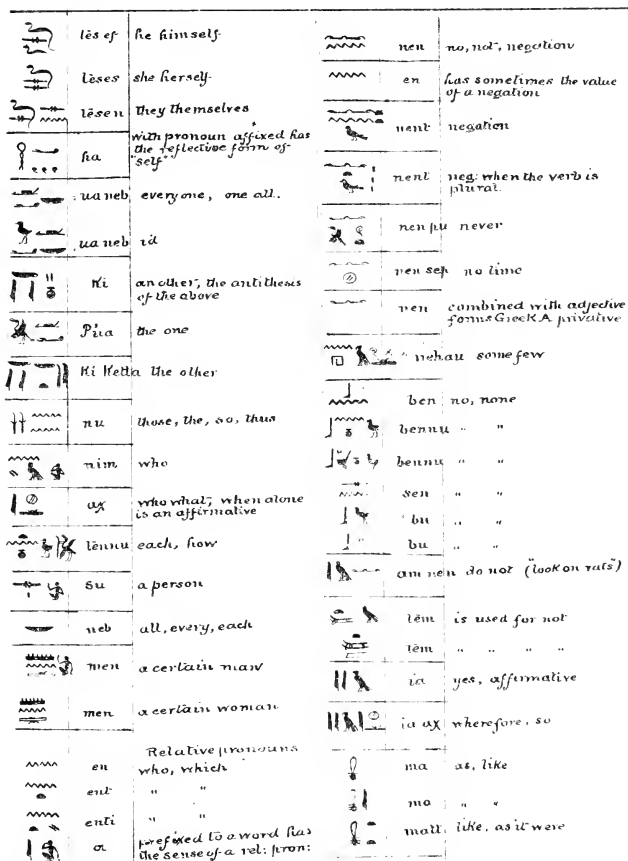 tēs ef he himself
tēses she herself
tēsen they themselves
ha with pronoun affixed has
the reflective form of
"self"
ua neb everyone, one all.
ua neb id
Ki another, the antithesis
of the above
P'ua the one
Ki Ketta the other
nu those, the, so, thus
nim who
aχ who what, when alone
is an affirmative
tennu each, how
su a person
neb all, every, each
men a certain man
men a certain woman
Relative pronouns
en who, which
ent " "
enti " "
a prefixed to a word has
the sense of a rel: pron:
nen no, not, negation
en has sometimes the value
of a negation
nent negation
nent neg: when the verb is
plural.
nen pu never
nen sep no time
nen combined with adjective
forms Greek A privative
nehau some few
ben no, none
bennu " "
bennu " "
sen " "
bu " "
bu " "
am nen do not ("look on rats")
tēm is used for not
tēm " " " "
ia yes, affirmative
ia aχ wherefore, so
ma as, like
ma " "
matt like, as it were